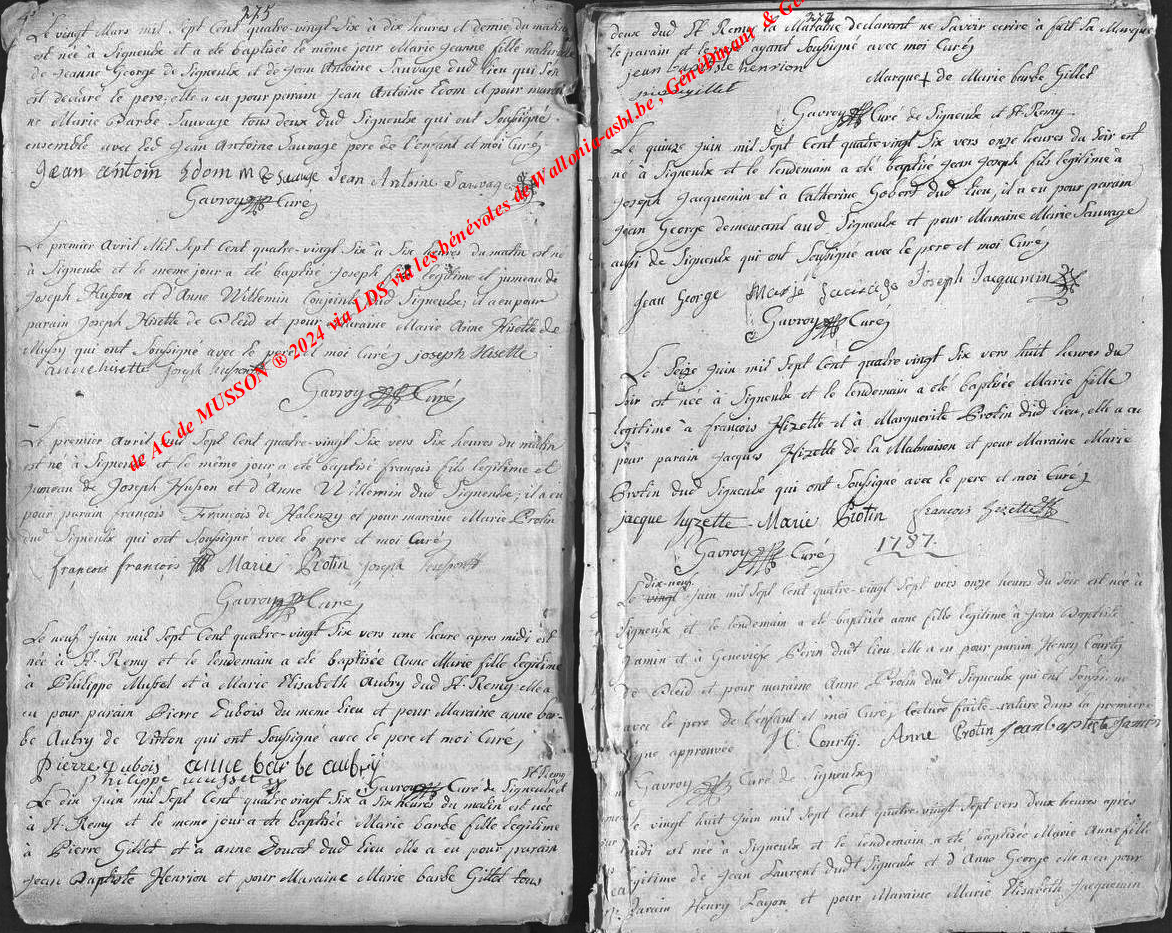 275
Le vingt Mars mil Sept Cent quatre-vingt Six à dix heures et demie du matin
est née à Signeulx et a eté baptisée le même jour Marie Jeanne fille naturelle
de Jeanne George de Signeulx et de Jean Antoine Sauvage dud lieu qui s'en
est declaré le pere; elle a eu pour parain Jean Antoine Edom et pour marai
ne Marie Barbe Sauvage tous deux dud Signeulx qui ont Soussigné
ensemble avec led Jean Antoine Sauvage pere de l'enfant et moi Curé
Jean antoin Edom M B Sauvage Jean Antoine Sauvage
Gavroy Curé
Le premier Avril Mil Sept Cent quatre-vingt Six à Six heures du matin est né
à Signeulx et le meme jour a eté baptisé Joseph fils legitime et jumeau de
Joseph Husson et d'Anne Willemin Conjoints dud Signeulx; il a eu pour
parain Joseph Hisette de Bleid et pour maraine Marie Anne Hisette de
Mussy qui ont Soussigné avec le pere et moi Curé joseph Hisette
anne hisette Joseph husson
Gavroy Curé
Le premier Avril mil Sept Cent quatre-vingt Six vers Six heures du matin
est né à Signeulx et le même jour a eté baptisé françois fils legitime et
Jumeau de Joseph Husson et d'Anne Willemin dud Signeulx; il a eu
pour parain françois François de Halenzy et pour maraine Marie Protin
dud Signeulx qui ont Soussigné avec le pere et moi Curé
francois françois Marie Protin joseph husson
Gavroy Curé
Le neuf Juin mil Sept Cent quatre-vingt Six vers une heure apres midi est
née à St Remy et le lendemain a eté baptisée Anne Marie fille legitime
à Philippe Musset et à Marie Elisabeth Aubry dud St Remy elle a
eu pour parain Pierre Dubois du meme lieu et pour Maraine anne bar-
be Aubry de Virton qui ont Soussigné avec le pere et moi Curé
Pierre Dubois anne barbe aubry
Philippe musset Gavroy Curé de Signeulx et St Remy
Le dix Juin mil Sept Cent quatre vingt Six à Six heures du matin est née
à St Remy et le meme jour a eté baptisée Marie barbe fille legitime
à Pierre Gillet et à anne dud lieu elle a eu pour parain
Jean Baptiste Henrion et pour Maraine Marie barbe Gillet tous
deux dud St Remy la Maraine declarant ne Savoir ecrire a fait Sa Marque
le parain et le pere ayant Soussigné avec moi Curé
jean baptiste henrion
Marque + de Marie barbe Gillet
pierre gillet
Gavroy Curé de Signeulx et St Remy
Le quinze Juin mil Sept Cent quatrevingt Six vers onze heures du Soir est
né à Signeulx et le lendemain a eté baptisé Jean Joseph fils legitime à
Joseph Jacquemin et à Catherine Gobert dud lieu, il a eu pour parain
Jean George demeurant aud Signeulx et pour Maraine Marie Sauvage
aussi de Signeulx qui ont Soussigné avec le pere et moi Curé
Jean George Marie Sauvage Joseph Jacquemin
Gavroy Curé
Le Seize Juin mil Sept Cent quatre-vingt Six vers huit heures du
Soir est née à Signeulx et le lendemain a eté baptisée Marie fille
legitime à françois Hizette et à Marguerite Protin dud lieu, elle a eu
pour parain Jacques Hizette de la Malmaison et pour Maraine Marie
Protin dud Signeulx qui ont Soussigné avec le pere et moi Curé
jacque hyzette Marie Protin francois hizette
Gavroy Curé
1787
dix-neuf
Le vingt Juin mil Sept Cent quatre-vingt Sept vers onze heures du Soir est née à
Signeulx et le lendemain a eté baptisée anne fille legitime à Jean Baptiste
Jamin et à Genevieve Perin dudt lieu, elle a eu pour parain Henry Courty
De Bleid et pour maraine Anne Protin dudt Signeulx qui ont Soussigné
avec le pere de l'enfant et moi Curé Lecture faite rature dans la premiere
ligne approuvée H: Courty Anne Protin jean baptiste Jamin
Gavroy Curé de Signeulx
Le vingt huit Juin mil Sept Cent quatre-vingt Sept vers Deux heures apres
midi est née à Signeulx et le lendemain a eté baptisée Marie Anne fille
legitime de Jean Laurent dudt Signeulx et d'Anne George elle a eu pour
Parain Henry Layon et pour Maraine Marie Elisabeth Jacquemin
de AC de MUSSON ® 2024 via LDS via les bénévoles de Wallonia-asbl.be , GénéDinant & Gé